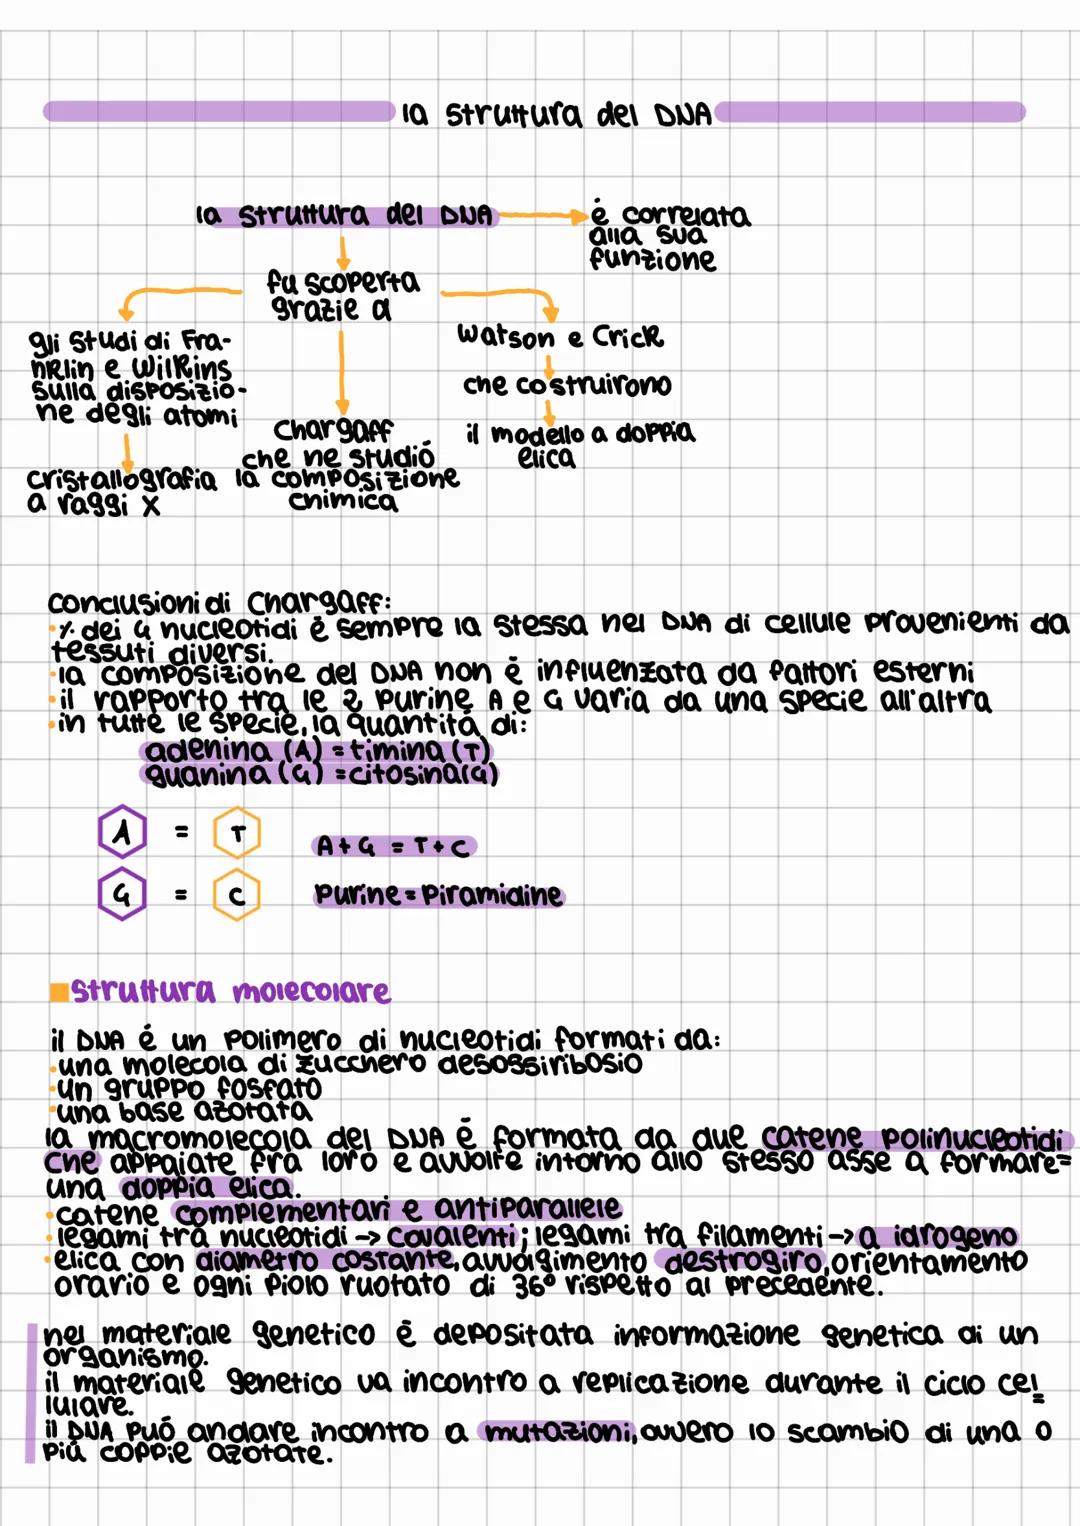 la struttura del DNA
la struttura del DNA
è correlata
alla sua
funzione
fu scoperta
grazie a
gli studi di Fra-
nklin e Wilkins
sulla disposizio-
ne degli atomi
cristallografia
a raggi X
Chargaff
che ne studiò
la composizione
chimica
Watson e Crick
che costruirono
il modello a doppia
elica
conclusioni di Chargaff:
·% dei 4 nucleotidi è sempre la stessa nel DNA di cellule provenienti da
tessuti diversi.
·la composizione del DNA non è influenzata da fattori esterni
·il rapporto tra le 2 purine A e G varia da una specie all'altra
·in tutte le specie, la quantità di:
adenina (A) = timina (T)
guanina (G) = citosina(G)
A = T
A+G = T+C
G = C
Purine = Piramidine
struttura molecolare
il DNA è un polimero di nucleotidi formati da:
·una molecola di zucchero desossiribosio
·un gruppo fosfato
·una base azotata
la macromolecola del DNA è formata da due catene polinucleotidi
che appaiate fra loro e avvolte intorno allo stesso asse a formare=
una doppia elica.
·catene complementari e antiparallele
·legami tra nucleotidi -> covalenti; legami tra filamenti -> a idrogeno
·elica con diametro costante, avvolgimento destrogiro, orientamento
orario e ogni piolo ruotato di 36° rispetto al precedente.
nel materiale genetico è depositata informazione genetica di un
organismo.
il materiale genetico va incontro a replicazione durante il ciclo cel=
lulare.
il DNA può andare incontro a mutazioni, ovvero lo scambio di una o
più coppie azotate.